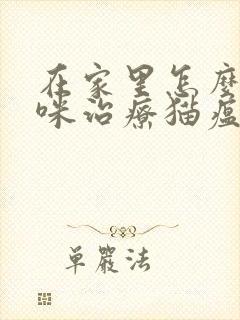 在家里怎麼
咪治療猫瘟
單嚴法